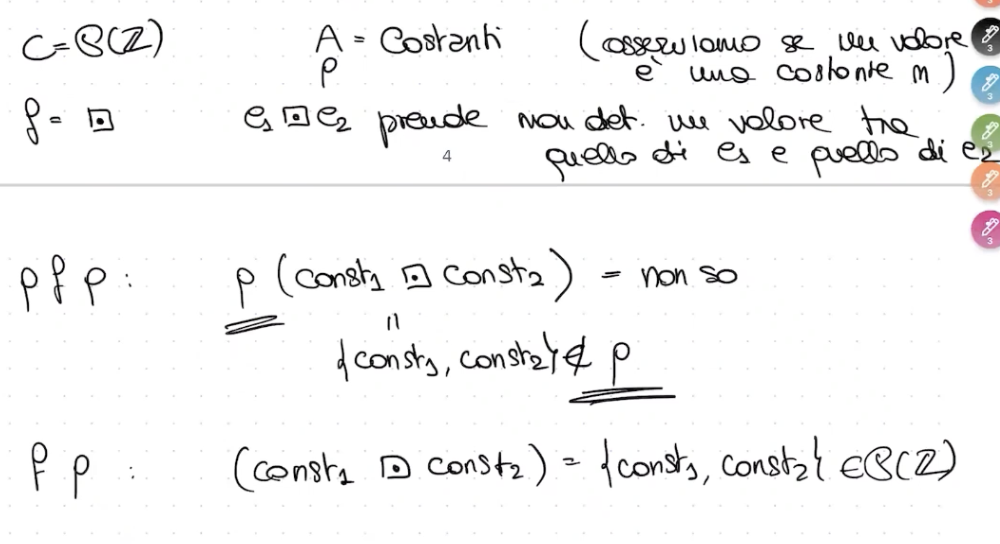 C = ℘(ℤ) A = Costanti (osserviamo se un valore
ρ è una costante n)
f = ⊡ e1 ⊡ e2 prende non det. un valore tra
4 quello di e1 e quello di e2
ρ f ρ : ρ (const1 ⊡ const2) = non so
=
{const1, const2} ∉ ρ
f ρ : (const1 ⊡ const2) = {const1, const2} ∈ ℘(ℤ)
3
3
3
3
3